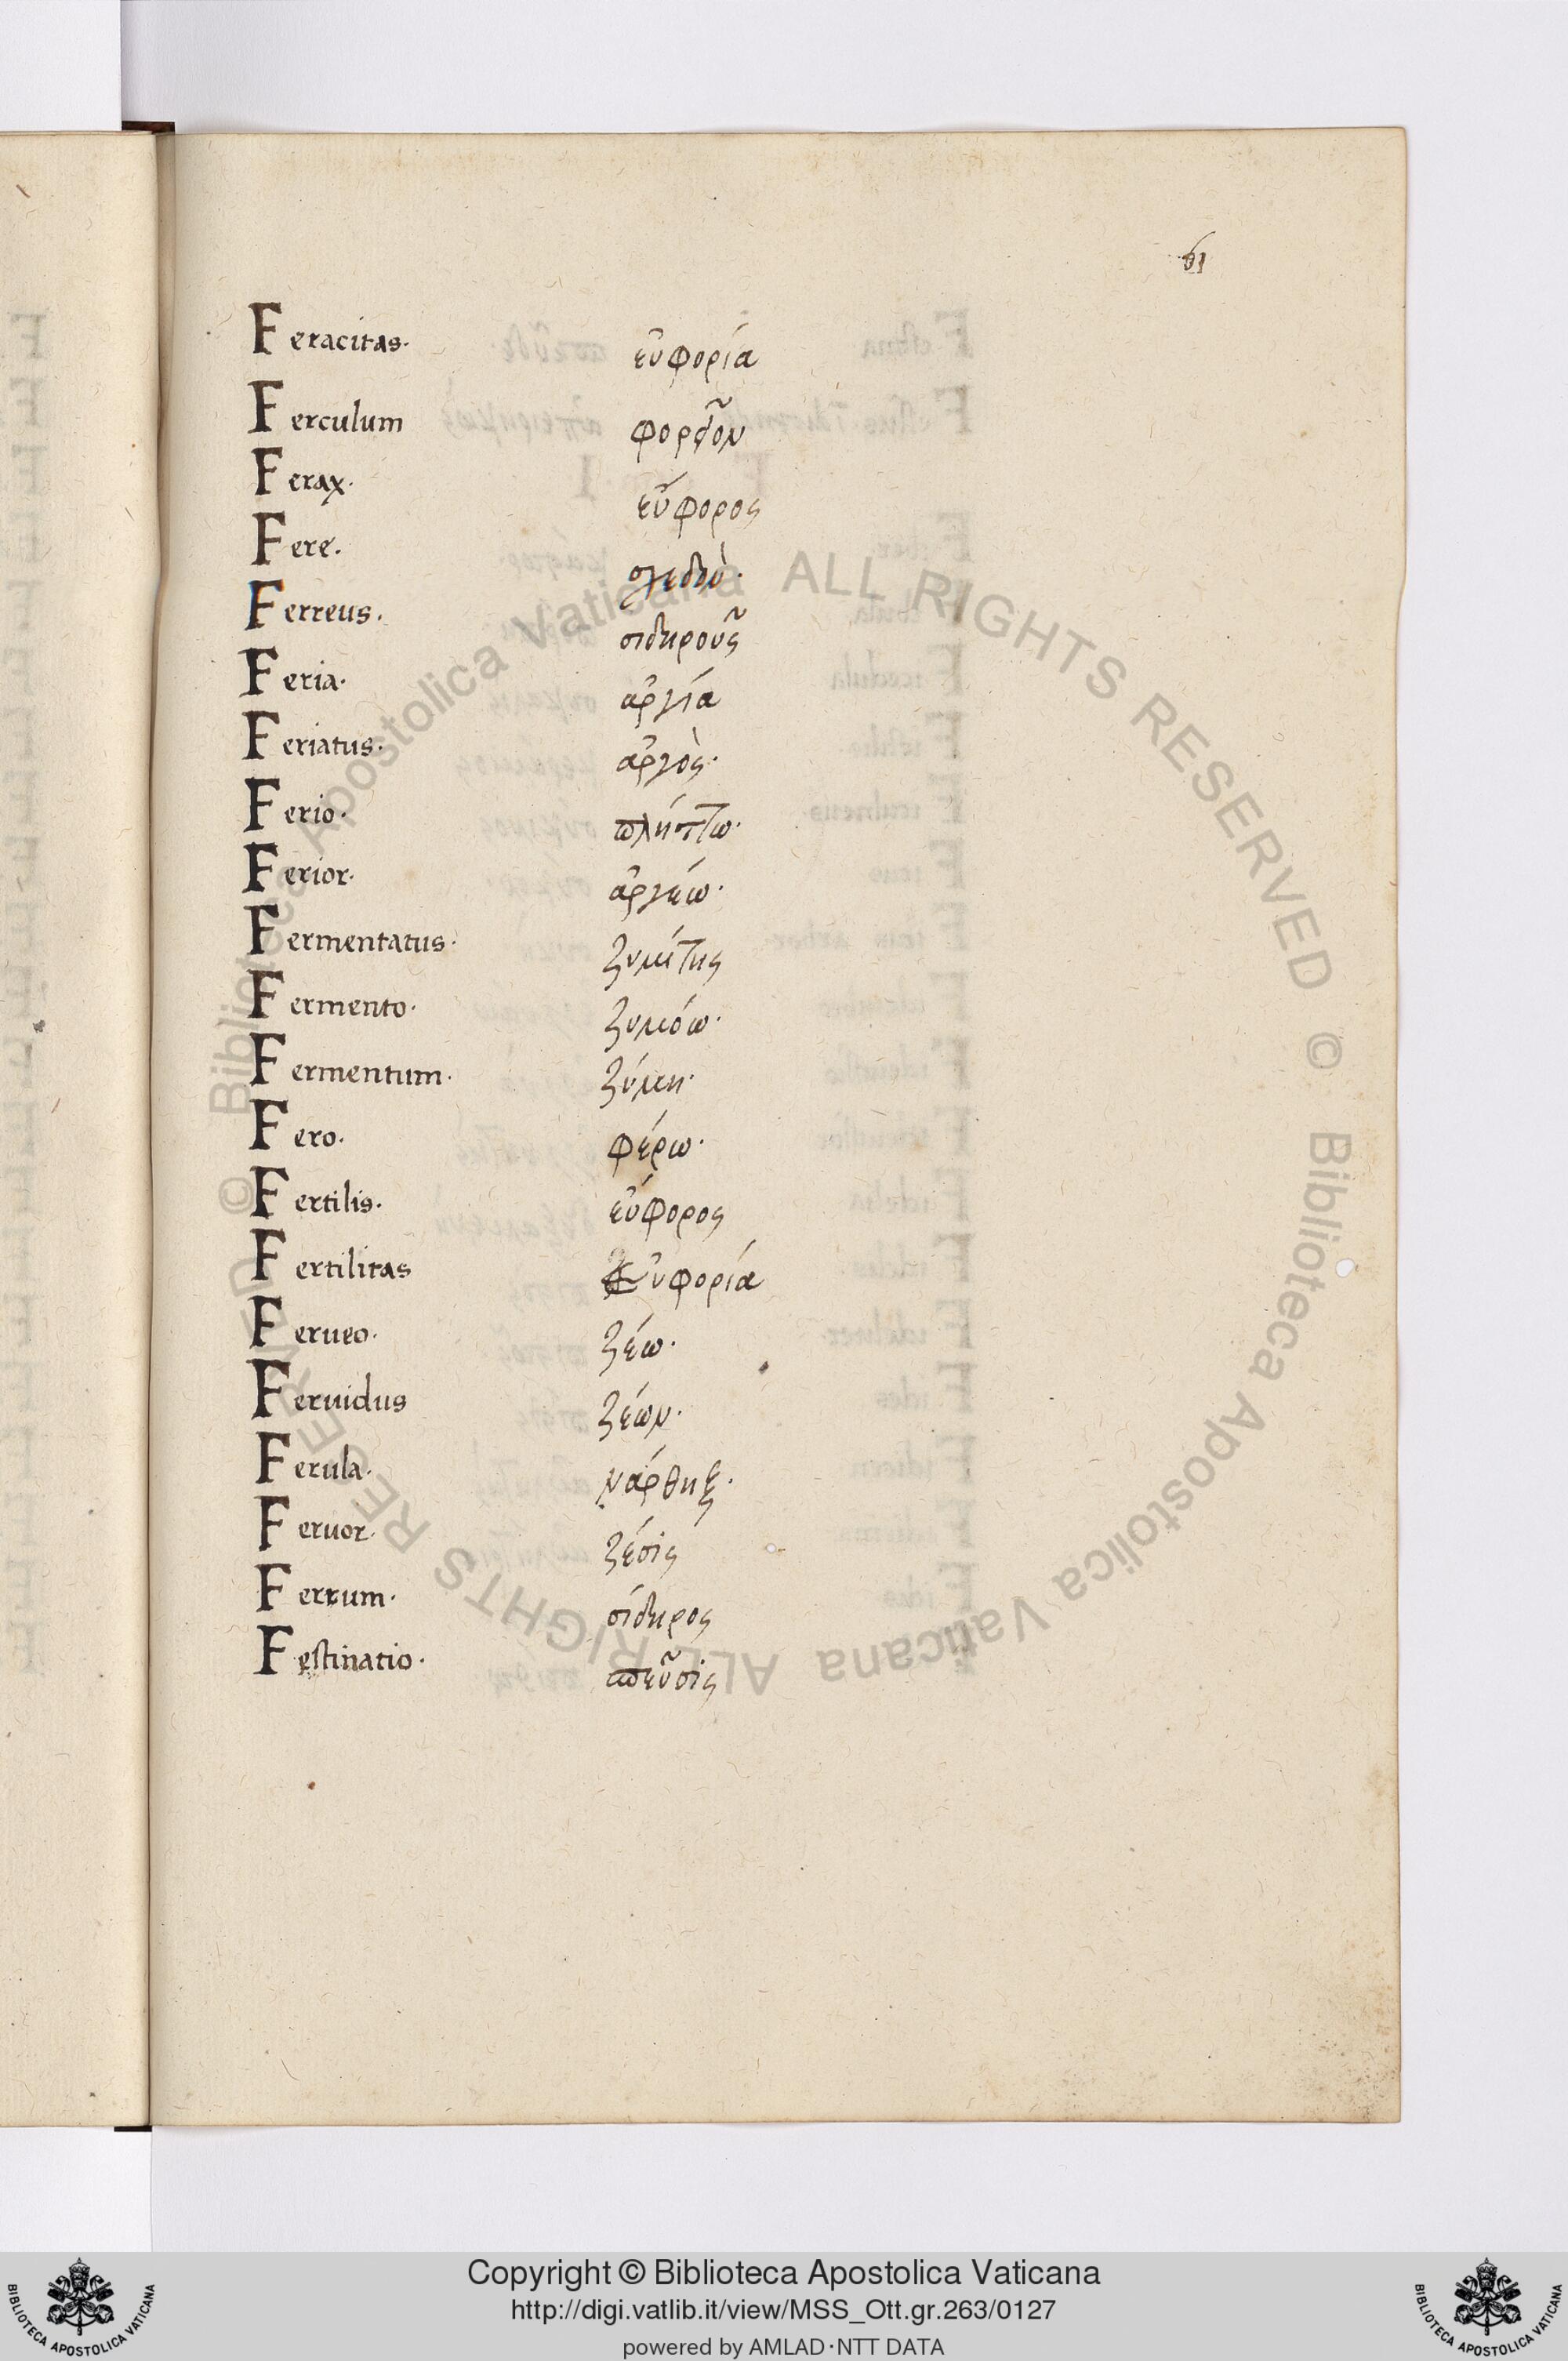 61
Feracitas· εὐφορία
Ferculum
Ferax· εὔφορος
Fere· σχεδὸν·
Ferreus· σιδηροῦς
Feria· ἀργία
Feriatus· ἀργὸς·
Ferio· πλήττω·
Ferior· ἀργέω·
Fermentatus· ζυμίτης
Fermento· ζυμόω·
Fermentum· ζύμη·
Fero· φέρω·
Fertilis· εὔφορος
Fertilitas εὐφορία
Ferueo· ζέω·
Feruidus ζέων·
Ferula· νάρθηξ·
Feruor· ζέσις
Ferrum· σίδηρος
Festinatio· σπεῦσις
© Biblioteca Apostolica Vaticana ALL RIGHTS RESERVED © Biblioteca Apostolica Vaticana ALL RIGHTS RESERVED
Copyright © Biblioteca Apostolica Vaticana
http://digi.vatlib.it/view/MSS_Ott.gr.263/0127
powered by AMLAD·NTT DATA
BIBLIOTECA APOSTOLICA VATICANA
BIBLIOTECA APOSTOLICA VATICANA